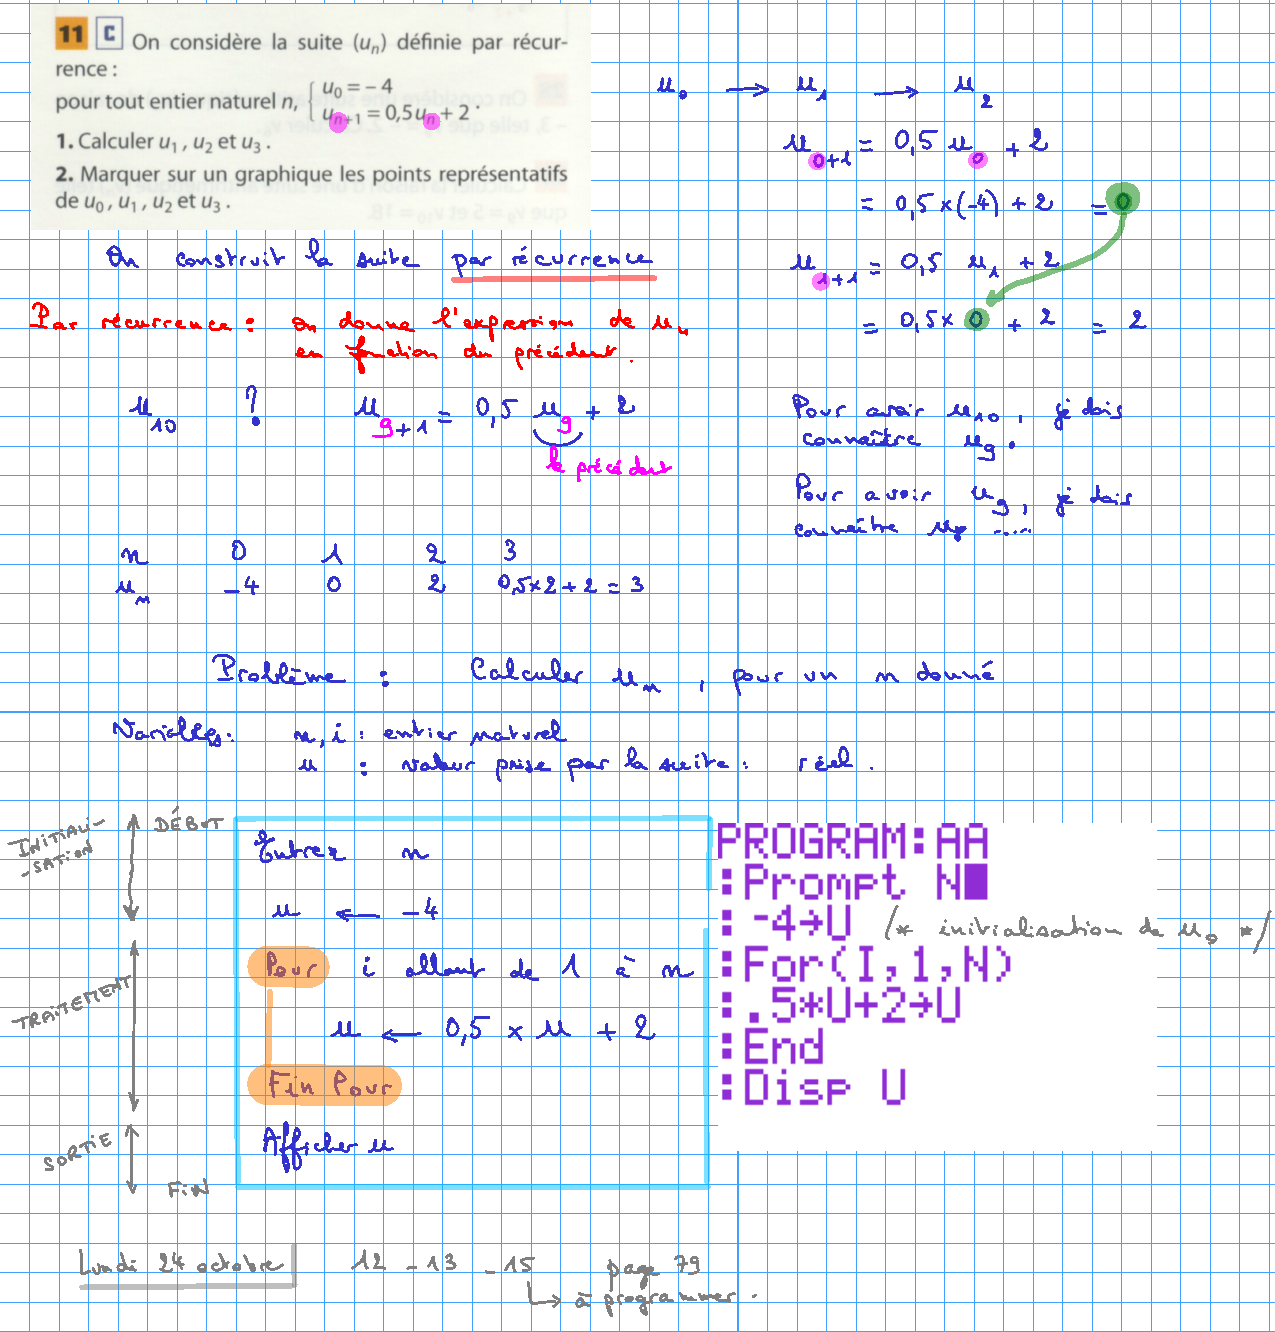 11 C On considère la suite (uₙ) définie par récur-
rence :
pour tout entier naturel n, { u₀ = – 4
uₙ₊₁ = 0,5uₙ + 2 .
1. Calculer u₁ , u₂ et u₃ .
2. Marquer sur un graphique les points représentatifs
de u₀ , u₁ , u₂ et u₃ .
u₀ → u₁ → u₂
u₀₊₁ = 0,5 u₀ + 2
= 0,5 × (-4) + 2 = 0
u₁₊₁ = 0,5 u₁ + 2
= 0,5 × 0 + 2 = 2
On construit la suite par récurrence
Par récurrence : on donne l'expression de uₙ
en fonction du précédent.
u₁₀ ? u₉₊₁ = 0,5 u₉ + 2
le précédent
Pour avoir u₁₀, je dois
connaître u₉.
Pour avoir u₉, je dois
connaître u₈ .....
n 0 1 2 3
uₙ -4 0 2 0,5×2+2 = 3
Problème : Calculer uₙ , pour un n donné
Variables : n, i : entier naturel
u : valeur prise par la suite : réel.
INITIALI-
-SATION
DÉBUT
Entrer n
u ← -4
TRAITEMENT
Pour i allant de 1 à n
u ← 0,5 × u + 2
Fin Pour
SORTIE
Afficher u
FIN
PROGRAM:AA
:Prompt N
:-4→U /* initialisation de u₀ */
:For(I,1,N)
:.5*U+2→U
:End
:Disp U
Lundi 24 octobre 12 - 13 - 15 page 79
↳ à programmer.